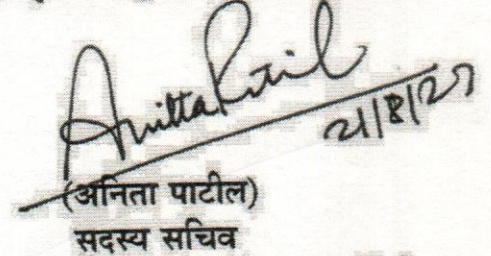 Anitta Patil
21/8/27
(अनिता पाटील)
सदस्य सचिव